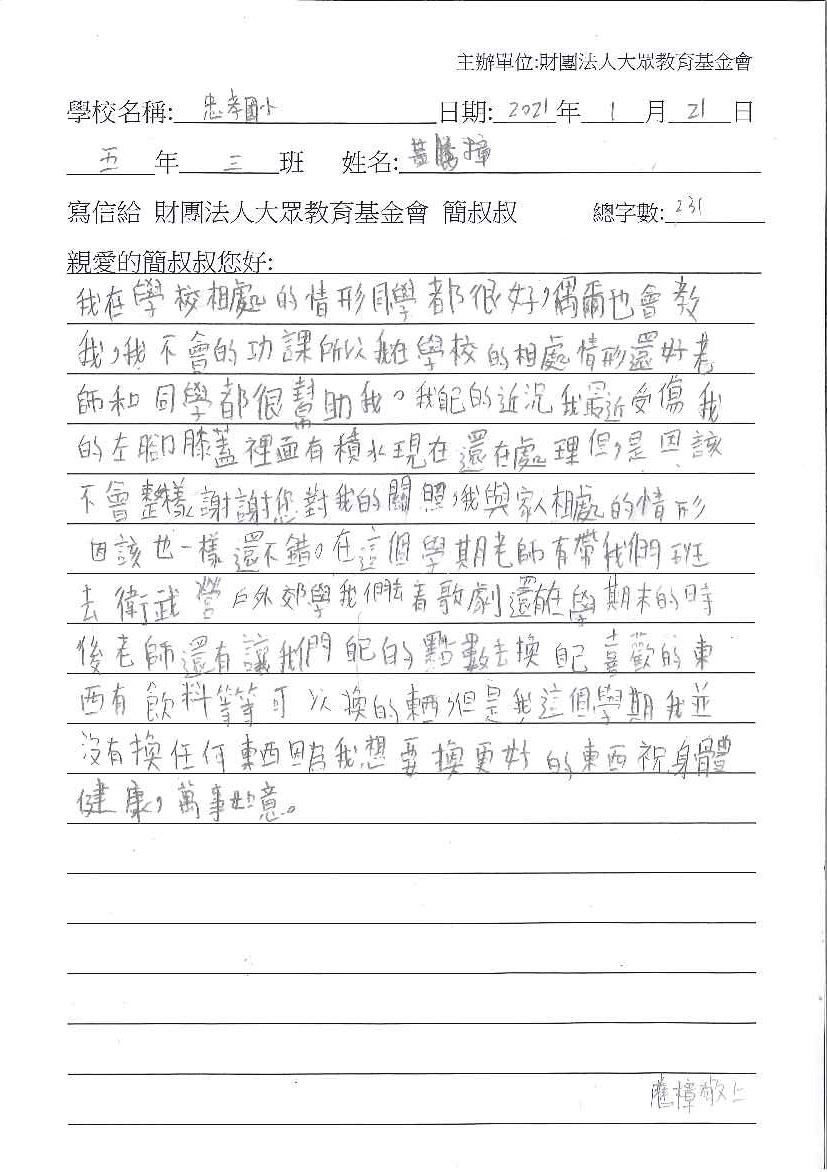 主辦單位:財團法人大眾教育基金會
學校名稱: 忠孝國小 日期: 2021 年 1 月 21 日
五 年 三 班 姓名: 黃 樟
寫信給 財團法人大眾教育基金會 簡叔叔 總字數: 231
親愛的簡叔叔您好:
我在學校相處的情形同學都很好,偶爾也會教
我,我不會的功課所以我在學校的相處情形還好老
師和同學都很幫助我。我自己的近況我最近受傷我
的左腳膝蓋裡面有積水現在還在處理但,是因該
不會整樣謝謝您對我的關照,我與家人相處的情形
因該也一樣還不錯。在這個學期老師有帶我們班
去衛武營戶外郊學我們去看歌劇還有在學期末的時
後老師還有讓我們自己的點數去換自己喜歡的東
西有飲料等等可以換的東西,但是我這個學期我並
沒有換任何東西因為我想要換更好的東西祝身體
健康,萬事如意。
樟敬上